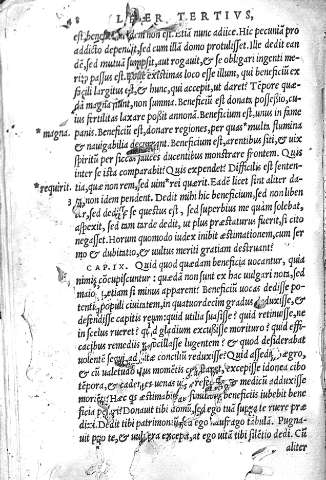 LIBER TERTIVS,
est, idem non est. Etiā nunc adiice. Hic pecuniā pro
addicto dependit, sed cum illā domo protulisset. Ille dedit ean
dē, sed mutuā sumpsit, aut rogauit, & se obligari ingenti me-
rito passus est. existimas loco esse illum, qui beneficiū ex
facili largitus est, & hunc, qui accepit, ut daret? Tēpore quæ-
dā magna fiunt, non summa. Beneficiū est donata possessio, cu-
ius fertilitas laxare possit annonā. Beneficiū est, unus in fame
*magna. panis. Beneficiū est, donare regiones, per quas *multa flumina
& nauigabilia decurrant. Beneficiū est, arentibus siti, & uix
spiritū per siccas fauces ducentibus monstrare fontem. Quis
inter se ista comparabit? Quis expendet? Difficilis est senten-
*requirit. tia, quæ non rem, sed uim *rei quærit. Eadē licet sint aliter da-
ta, non idem pendent. Dedit mihi hic beneficium, sed non liben
ter, sed dedisse se questus est, sed superbius me quàm solebat,
aspexit, sed tam tarde dedit, ut plus præstaturus fuerit, si cito
negasset. Horum quomodo iudex inibit æstimationem, cum ser
mo & dubitatio, & uultus meriti gratiam destruant?
CAP. IX. Quid quod quædam beneficia uocantur, quia
nimis cōcupiscuntur: quædā non sunt ex hac uulgari nota, sed
maiora, etiam si minus apparent? Beneficiū uocas dedisse po-
tentis populi ciuitatem, in quatuordecim gradus deduxisse, &
defendisse capitis reum: quid utilia suasisse? quid retinuisse, ne
in scelus rueret? quid gladium excussisse morituro? quid effi-
cacibus remediis focillasse lugentem? & quos desiderabat
uolentē sequi, ad uitæ consiliū reduxisse? Quid assedisse ægro,
& cū ualetudo eius momētis constaret, excepisse idonea cibo
tēpora, & cadentes uenas uino refecisse, & medicū adduxisse
morienti? Hæc quis æstimabit? quis dissimilibus beneficiis iubebit bene
ficia pensari? Donauit tibi domū, sed ego tuā supra te ruere præ
dixi. Dedit tibi patrimoniū, sed ego naufrago tabulā. Pugna-
uit pro te, & uulnera excepit, at ego uitā tibi silētio dedi. Cū
aliter